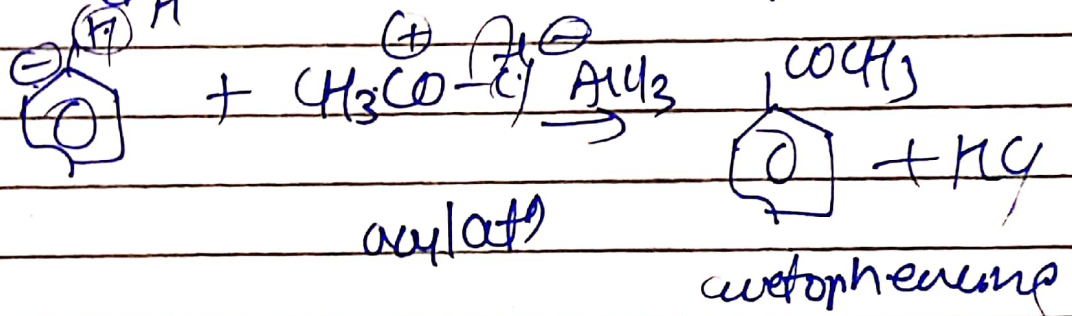 H H
⊖ + CH₃CO⊕ – Cl⊖ AlCl₃ → COCH₃ + HCl
acylatn
acetophenone